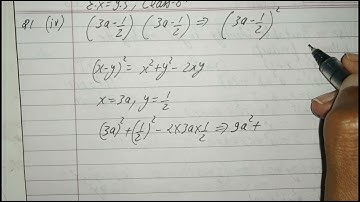 Ex = 9.5, Class-8
Q1 (ix) (3a-1/2) (3a-1/2) ⇒ (3a-1/2)²
(x-y)² = x²+y²-2xy
x=3a, y=1/2
(3a)²+(1/2)²-2×3a×1/2 ⇒ 9a²+